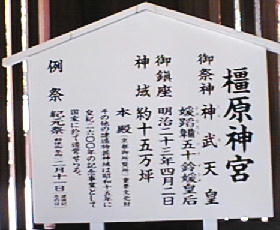 橿原神宮
御祭神 神武天皇
媛蹈韛五十鈴媛皇后
御鎮座 明治二十三年四月二日
神域 約十五万坪
本殿
その他の建造物並神域は昭和十五年に
皇紀二六〇〇年の記念事業として
国家に於て造営せらる。
例祭 紀元祭 二月十一日